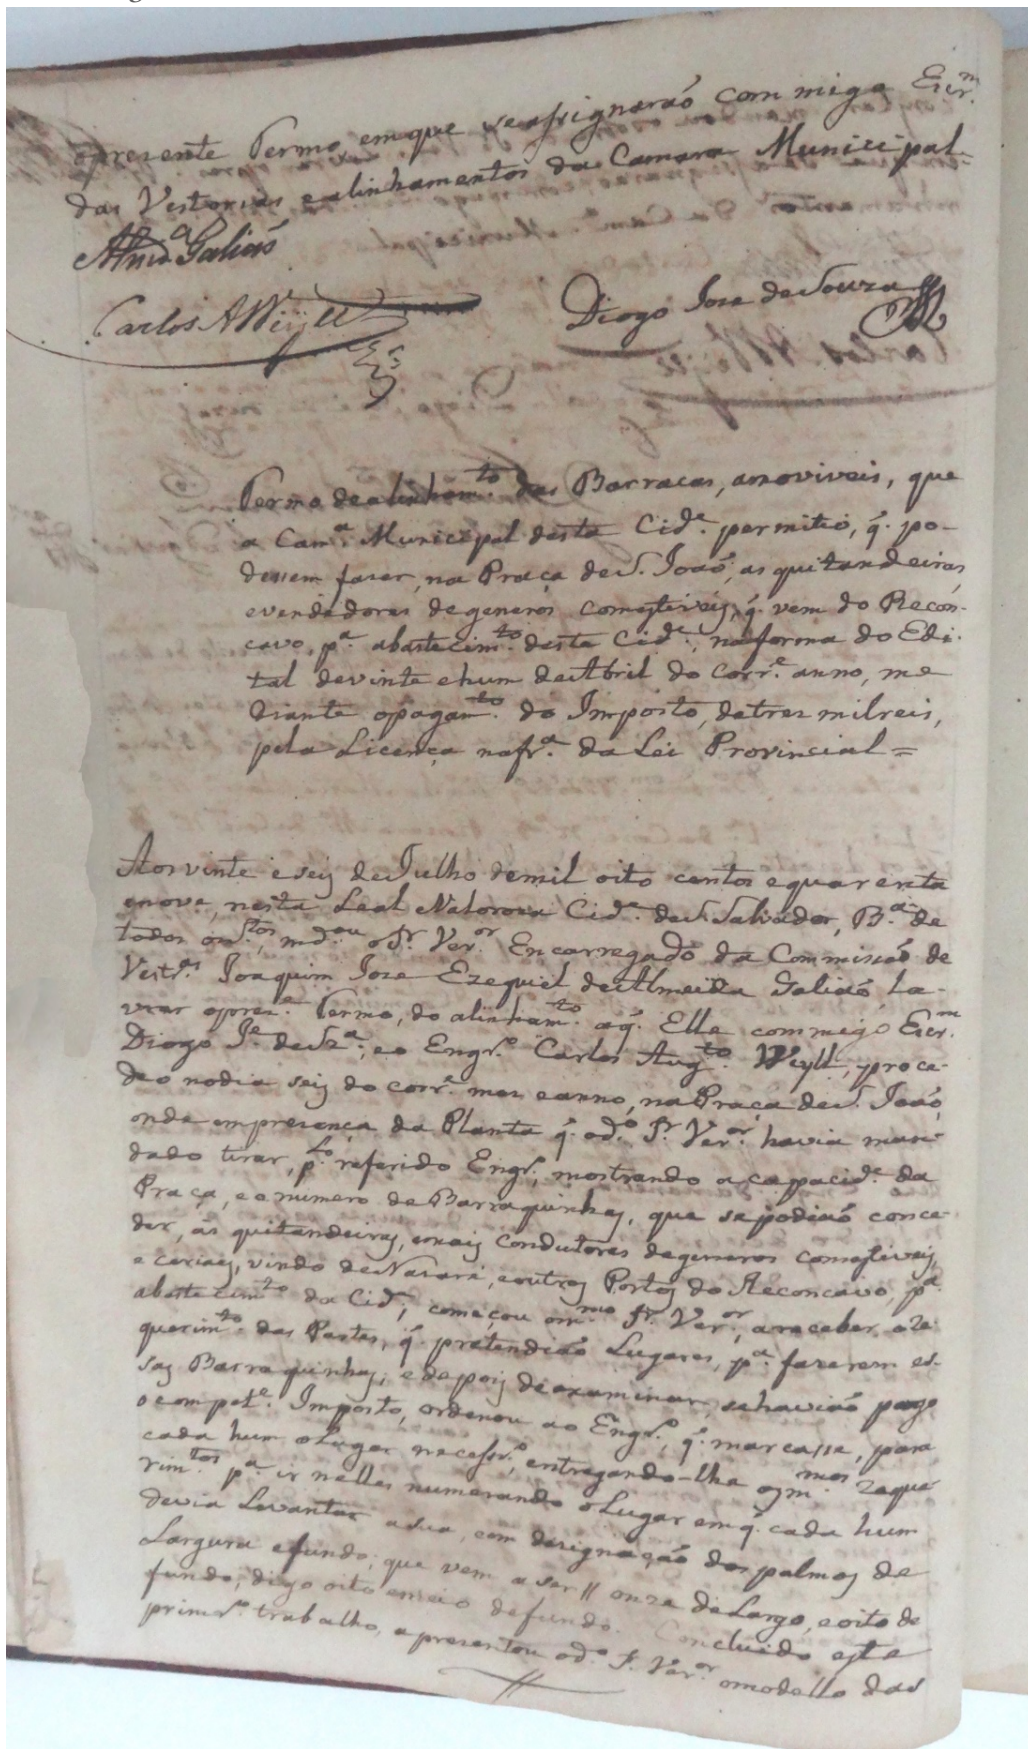 opresente Termo, emque seassignaraõ com migo Escr.m
das Vestorias e alinhamentos da Camara Municipal=
Almd.a Galiaõ
Carlos A Weyll
Diogo Jose de Souza
Termo de alinham.to das Barracas, amoviveis, que
a Cam.a Municipal desta Cid.e permitio, q. po-
dessem faser, na Praça de S. Joaõ, as quitandeiras,
evendedoras de generos comestiveis, q. vem do Recon-
cavo, p.a abastecim.to desta Cid.e, naforma do Edi-
tal devinte ehum de Abril do Corr.e anno, me
diante opagam.to do Imposto, detres milreis,
pela Licença nafr.a da Lei Provincial=
Aos vinte e seis de Julho demil oito centos equarenta
enove, nesta Leal Valorosa Cid.e de S. Salvador, B.a de
todos os S.tos, md.ou o Sr. Ver.or Encarregado da Commissaõ de
Vest.as Joaquim Jose Ezequiel de Almeida Galiaõ, La-
vrar opres.e Termo, do alinham.to aq. Elle commigo Escr.m
Diogo J.e de Sz.a, eo Engr.o Carlos Aug.to Weyll, proce-
deo nodia seis do corr.e mes eanno, na Praça de S. Joaõ,
onde empresença da Planta q. od.o Sr. Ver.or havia man-
dado tirar, p.lo referido Engr.o, mostrando a capacid.e da
Praça, eo numero de Barraquinhas, que sepodiaõ conce-
der, ás quitandeiras, emais condutores degeneros comestiveis,
e ceriaes, vindo de Nasaré, eoutros Portos do Reconcavo, p.a
abastecim.to da Cid.e, começou om.mo Sr. Ver.or, areceber os re
querim.tos das Partes, q. pretendiaõ Lugares, p.a fazerem es-
sas Barraquinhas, e depois deexaminar, sehaviaõ pago
ocompet.e Imposto, ordenou ao Engr.o, q. marcasse, para
cada hum o Lugar necessr.o, entregando-lhe osm.mos reque
rim.tos p.a ir nelles numerando o Lugar emq. cada hum
devia Levantar asua, com designaçaõ dos palmos de
Largura efundo, que vem a ser // onze de Largo, eoito de
fundo, digo oito emeio defundo. Concluido este
primr.o trabalho, apresentou od.o S. Ver.or omodello das